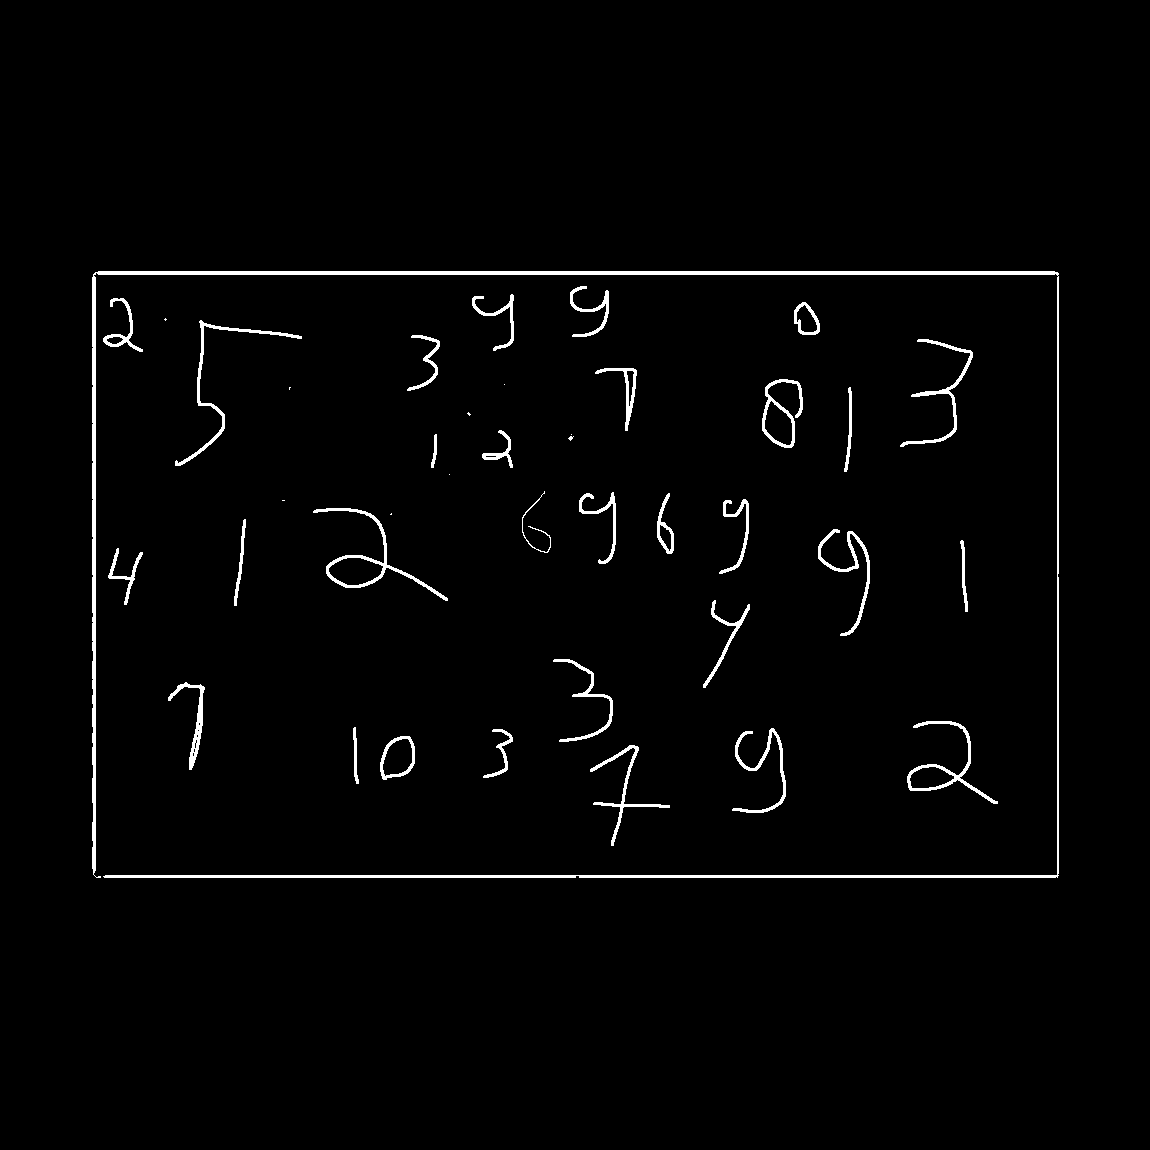 2 5 3 9 9 7 0 8 1 3
1 2
4 1 2 6 9 6 9 9 1
7 10 3 3 7 9 2